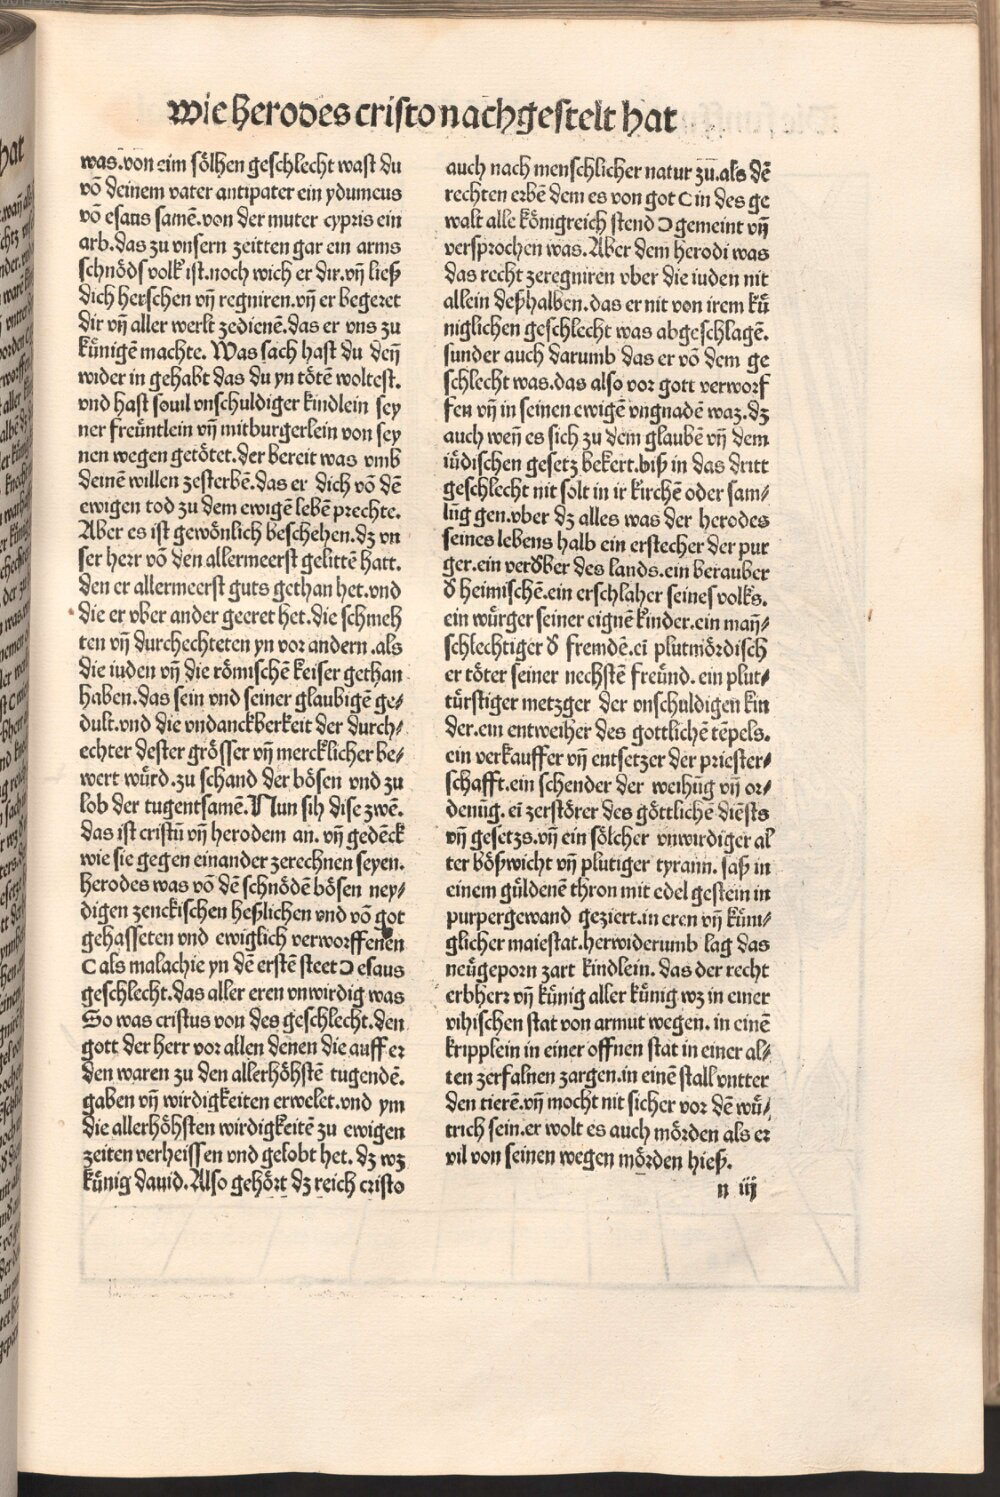 wie herodes cristo nachgestelt hat
was.von eim sölhen geschlecht wast du
vō deinem vater antipater ein ydumeus
vō esaus samē.von der muter cypris ein
arb.das zu vnsern zeitten gar ein arms
schnöds volk ist.noch wich er dir.vn̄ ließ
dich herschen vn̄ regniren.vn̄ er begeret
dir vn̄ aller werlt zedienē.das er vns zu
kü̈nigē machte. Was sach hast du den̄
wider in gehabt das du yn tötē woltest.
vnd hast souil vnschuldiger kindlein sey
ner freüntlein vn̄ mitburgerlein von sey
nen wegen getötet.der bereit was vmb
deinē willen zesterbē.das er dich vō dē
ewigen tod zu dem ewigē lebē prechte.
Aber es ist gewönlich beschehen.dz vn
ser herr vō den allermeerst gelittē hatt.
den er allermeerst guts gethan het.vnd
die er vber ander geeret het.die schmeh
ten vn̄ durchechteten yn vor andern.als
die iuden vn̄ die römischē keiser gethan
haben.das sein vnd seiner glaubigē ge⸗
dult.vnd die vndanckberkeit der durch⸗
echter dester grösser vn̄ mercklicher be⸗
wert würd.zu schand der bösen vnd zu
lob der tugentsamē.Nun sih dise zwē.
das ist cristū vn̄ herodem an. vn̄ gedēck
wie sie gegen einander zerechnen seyen.
herodes was vō dē schnödē bösen ney⸗
digen zenckischen heßlichen vnd vō got
gehasseten vnd ewiglich verworffenen
(als malachie yn dē erstē steet) esaus
geschlecht.das aller eren vnwirdig was
So was cristus von des geschlecht.den
gott der herr vor allen denen die auff er
den waren zu den allerhöhstē tugendē.
gaben vn̄ wirdigkeiten erwelet.vnd ym
die allerhöhsten wirdigkeitē zu ewigen
zeiten verheissen vnd gelobt het. dz wz
künig dauid. Also gehört dz reich cristo
auch nach menschlicher natur zu.als dē
rechten erbē dem es von got (in des ge
walt alle königreich stend) gemeint vn̄
versprochen was. Aber dem herodi was
das recht zeregniren vber die iuden nit
allein deßhalben.das er nit von irem kü
niglichen geschlecht was abgeschlagē.
sunder auch darumb das er vō dem ge
schlecht was.das also vor gott verworf
fen vn̄ in seinen ewigē vngnadē waz.dz
auch wen̄ es sich zu dem glaubē vn̄ dem
iüdischen gesetz bekert.biß in das dritt
geschlecht nit solt in ir kirchē oder sam⸗
lūg gen.vber dz alles was der herodes
seines lebens halb ein erstecher der pur
ger.ein verđber des lands.ein berauber
đ heimischē.ein erschlaher seines volks.
ein würger seiner eignē kinder.ein man̄⸗
schlechtiger đ fremdē.eī plutmördisch
er töter seiner nechstē freünd. ein plut⸗
türstiger metzger der vnschuldigen kin
der.ein entweiher des gottlichē tēpels.
ein verkauffer vn̄ entsetzer der priester⸗
schafft.ein schender der weihūg vn̄ or⸗
denūg. eī zerstörer des göttlichē diēsts
vn̄ gesetzs.vn̄ ein sölcher vnwirdiger al
ter bößwicht vn̄ plutiger tyrann. saß in
einem güldenē thron mit edel gestein in
purpergewand geziert.in eren vn̄ küni⸗
glicher maiestat.herwiderumb lag das
neügeporn zart kindlein. das der recht
erbherr vn̄ künig aller künig wz in einer
vihischen stat von armut wegen. in einē
kripplein in einer offnen stat in einer al⸗
ten zerfalnen zargen.in einē stall vntter
den tierē.vn̄ mocht nit sicher vor dē wü⸗
trich sein.er wolt es auch mörden als er
vil von seinen wegen mörden hieß.
n iij